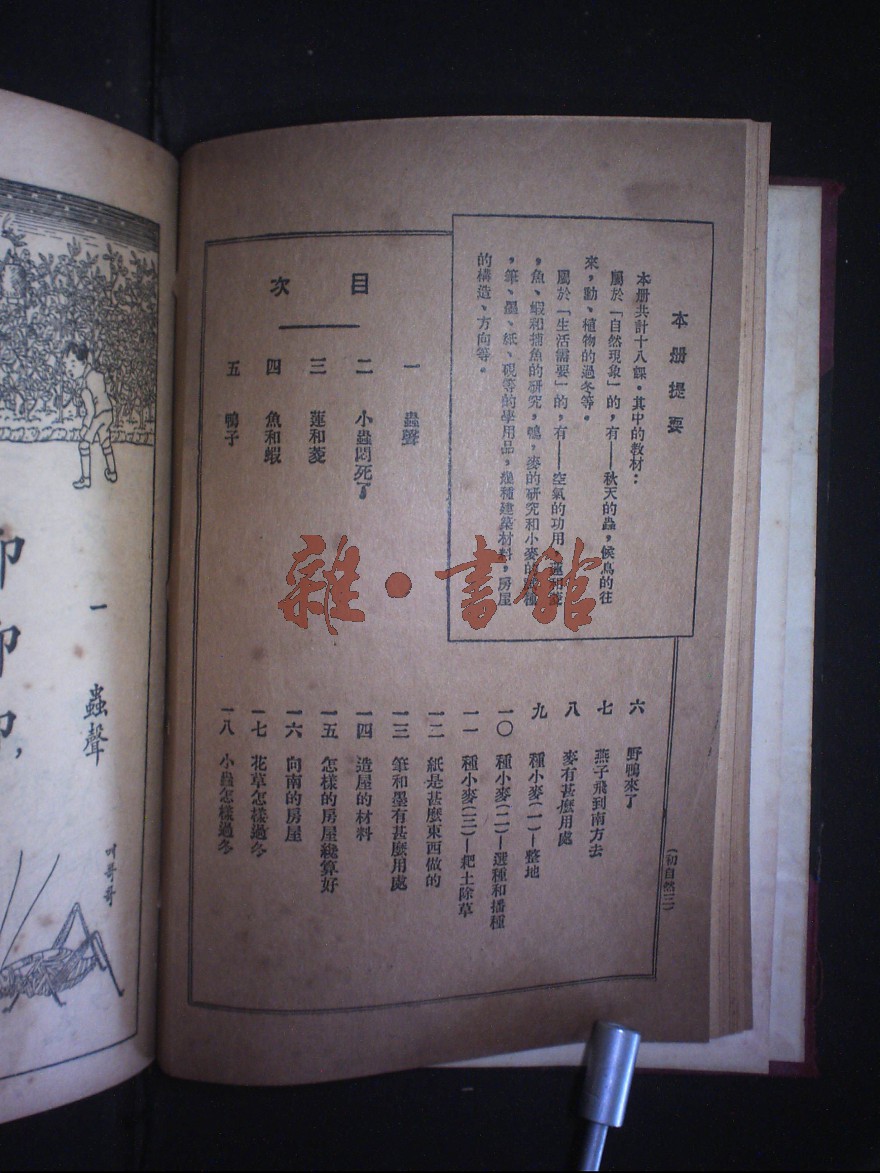 本册提要
本册共計十八課。其中的教材：
屬於「自然現象」的，有——秋天的蟲，候鳥的往
來，動、植物的過冬等。
屬於「生活需要」的，有——空氣的功用，蓮和菱
，魚、蝦和捕魚的研究，鴨、麥的研究和小麥的
，筆、墨、紙、硯等的學用品，幾種建築材料，房屋
的構造、方向等。
目次
一 蟲聲
二 小蟲悶死了
三 蓮和菱
四 魚和蝦
五 鴨子
六 野鴨來了
七 燕子飛到南方去
八 麥有甚麼用處
九 種小麥(一)—整地
一〇 種小麥(二)—選種和播種
一一 種小麥(三)—耙土除草
一二 紙是甚麼東西做的
一三 筆和墨有甚麼用處
一四 造屋的材料
一五 怎樣的房屋纔算好
一六 向南的房屋
一七 花草怎樣過冬
一八 小蟲怎樣過冬
(初自然三)
雜·書館
一 蟲聲
哥哥